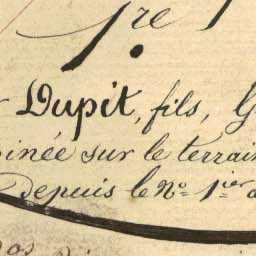 1re
Dupit, fils, G
sur le terrain
depuis le No. 1ier a